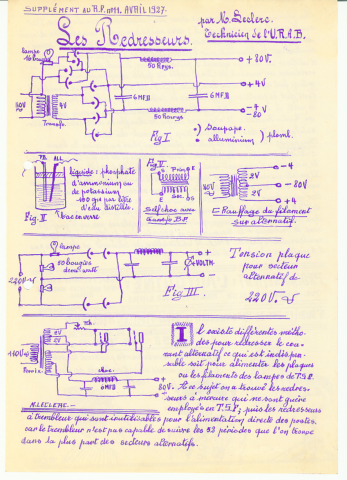 SUPPLÉMENT AU R.P. nº11. AVRIL 1927.
par N. Leclerc.
Technicien de l'U.R.A.B.
Les Redresseurs.
lampe
16 bougies
50 Hrys.
+ 80V.
+ 4V
6 MFD
6 MFD
110V
4V
Transfo.
50 Hrys
- 4
80V
Fig I
•) Soupape
•) aluminium
) plomb.
PB. ALL.
liquide: phosphate
d'ammonium ou
de potassium
160 grs par litre
d'eau distillée.
Fig. II
bac en verre
Fig V
S Prim E
E Sec. OS
Self choc avec
transfo B.F.
- 4
80V
2V
2V
- 80V
+ 4
Chauffage du filament
sur alternatif.
lampe
50 bougies
demi-watt
220V
VOLTM.
+
-
Fig III.
Tension plaque
pour secteur
alternatif de
220V.
110V
2V
2V
6 MFD
+
80V.
-
N. LECLERC -
Il existe différentes métho-
des pour redresser le cou-
rant alternatif ce qui est indispen-
sable soit pour alimenter les plaques
ou les filaments des lampes de T.S.F.
A ce sujet on a trouvé les redres-
seurs à mercure qui ne sont guère
employés en T.S.F.; puis les redresseurs
à trembleur qui sont inutilisables pour l'alimentation directe des postes.
car le trembleur n'est pas capable de suivre les 53 périodes que l'on trouve
dans la plus part des secteurs alternatifs.